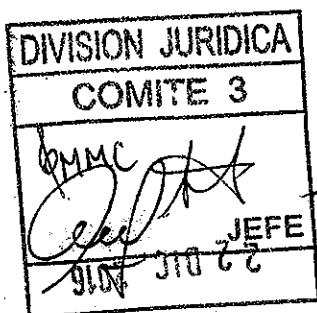 DIVISION JURIDICA
COMITE 3
JEFE
22 DIC 2016